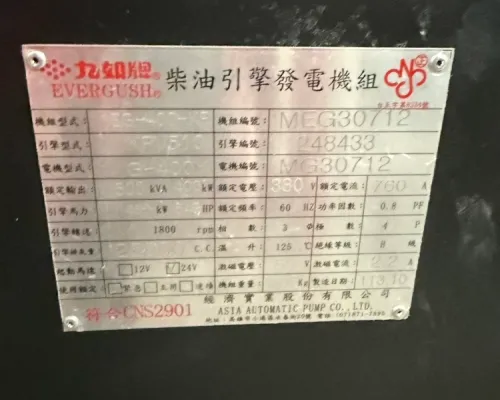 九如牌® 柴油引擎發電機組
EVERGUSH®
機組型式: 機組編號: MEG30712
引擎型式: 引擎編號: 248433
電機型式: 電機編號: MG30712
額定輸出: 500 kVA 400 kW 額定電壓: 380 V 額定電流: 760 A
引擎馬力 HP 額定頻率: 60 HZ 功率因數: 0.8 PF
引擎轉速: 1800 rpm 相數: 3 φ 極數: 4 P
C.C. 溫升: 125 ℃ 絕緣等級: H 級
起動馬達 12V ☑24V 激磁電壓: V 激磁電流: 2.2 A
使用額定 緊急 主要 連續 機組重量: Kg 製造日期: 113.10
符合CNS2901 經濟實業股份有限公司
ASIA AUTOMATIC PUMP CO., LTD.